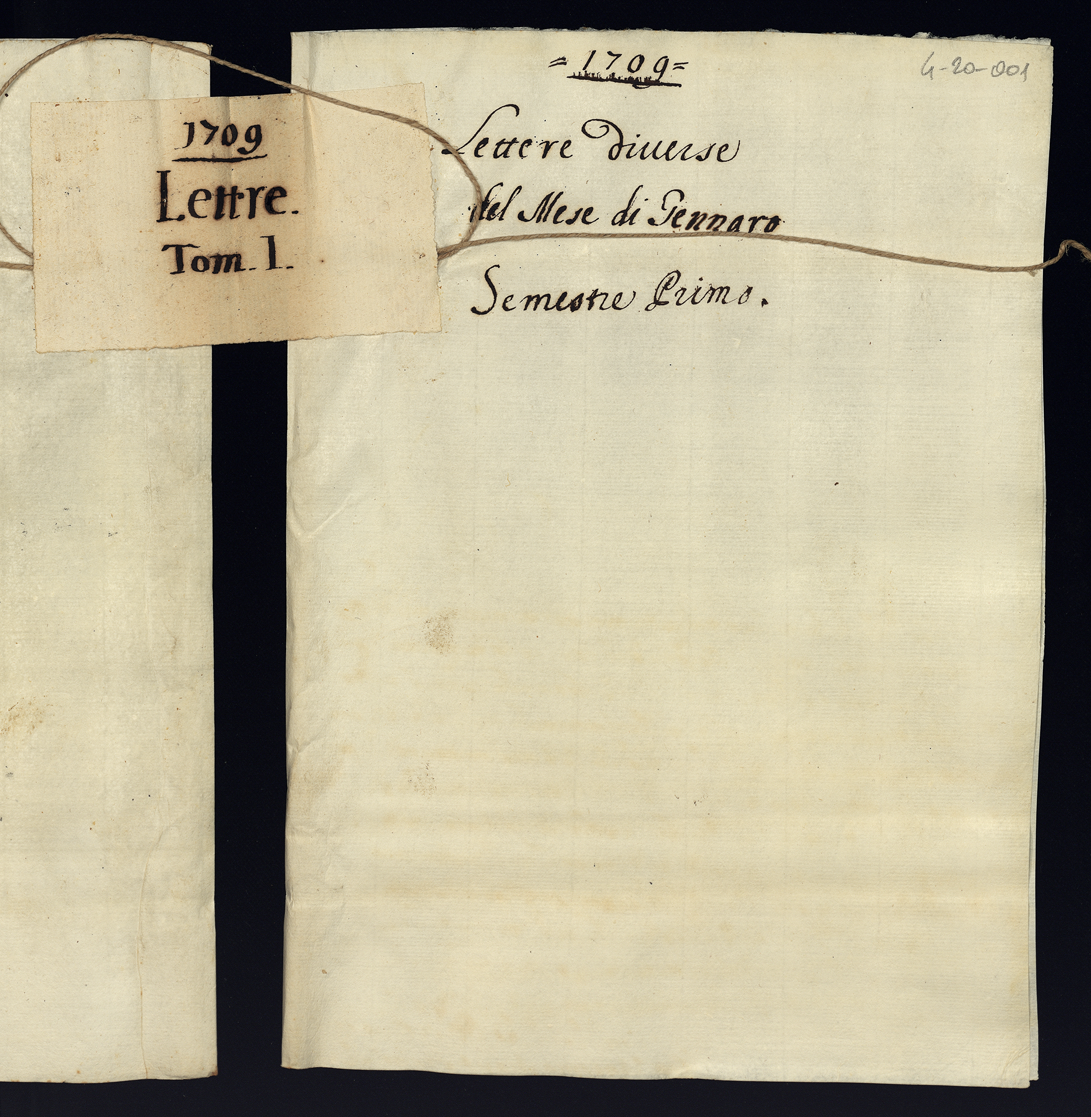 1709
Lettre.
Tom. 1.
= 1709 =
4-20-001
Lettere diuerse
del Mese di Gennaro
Semestre Primo.